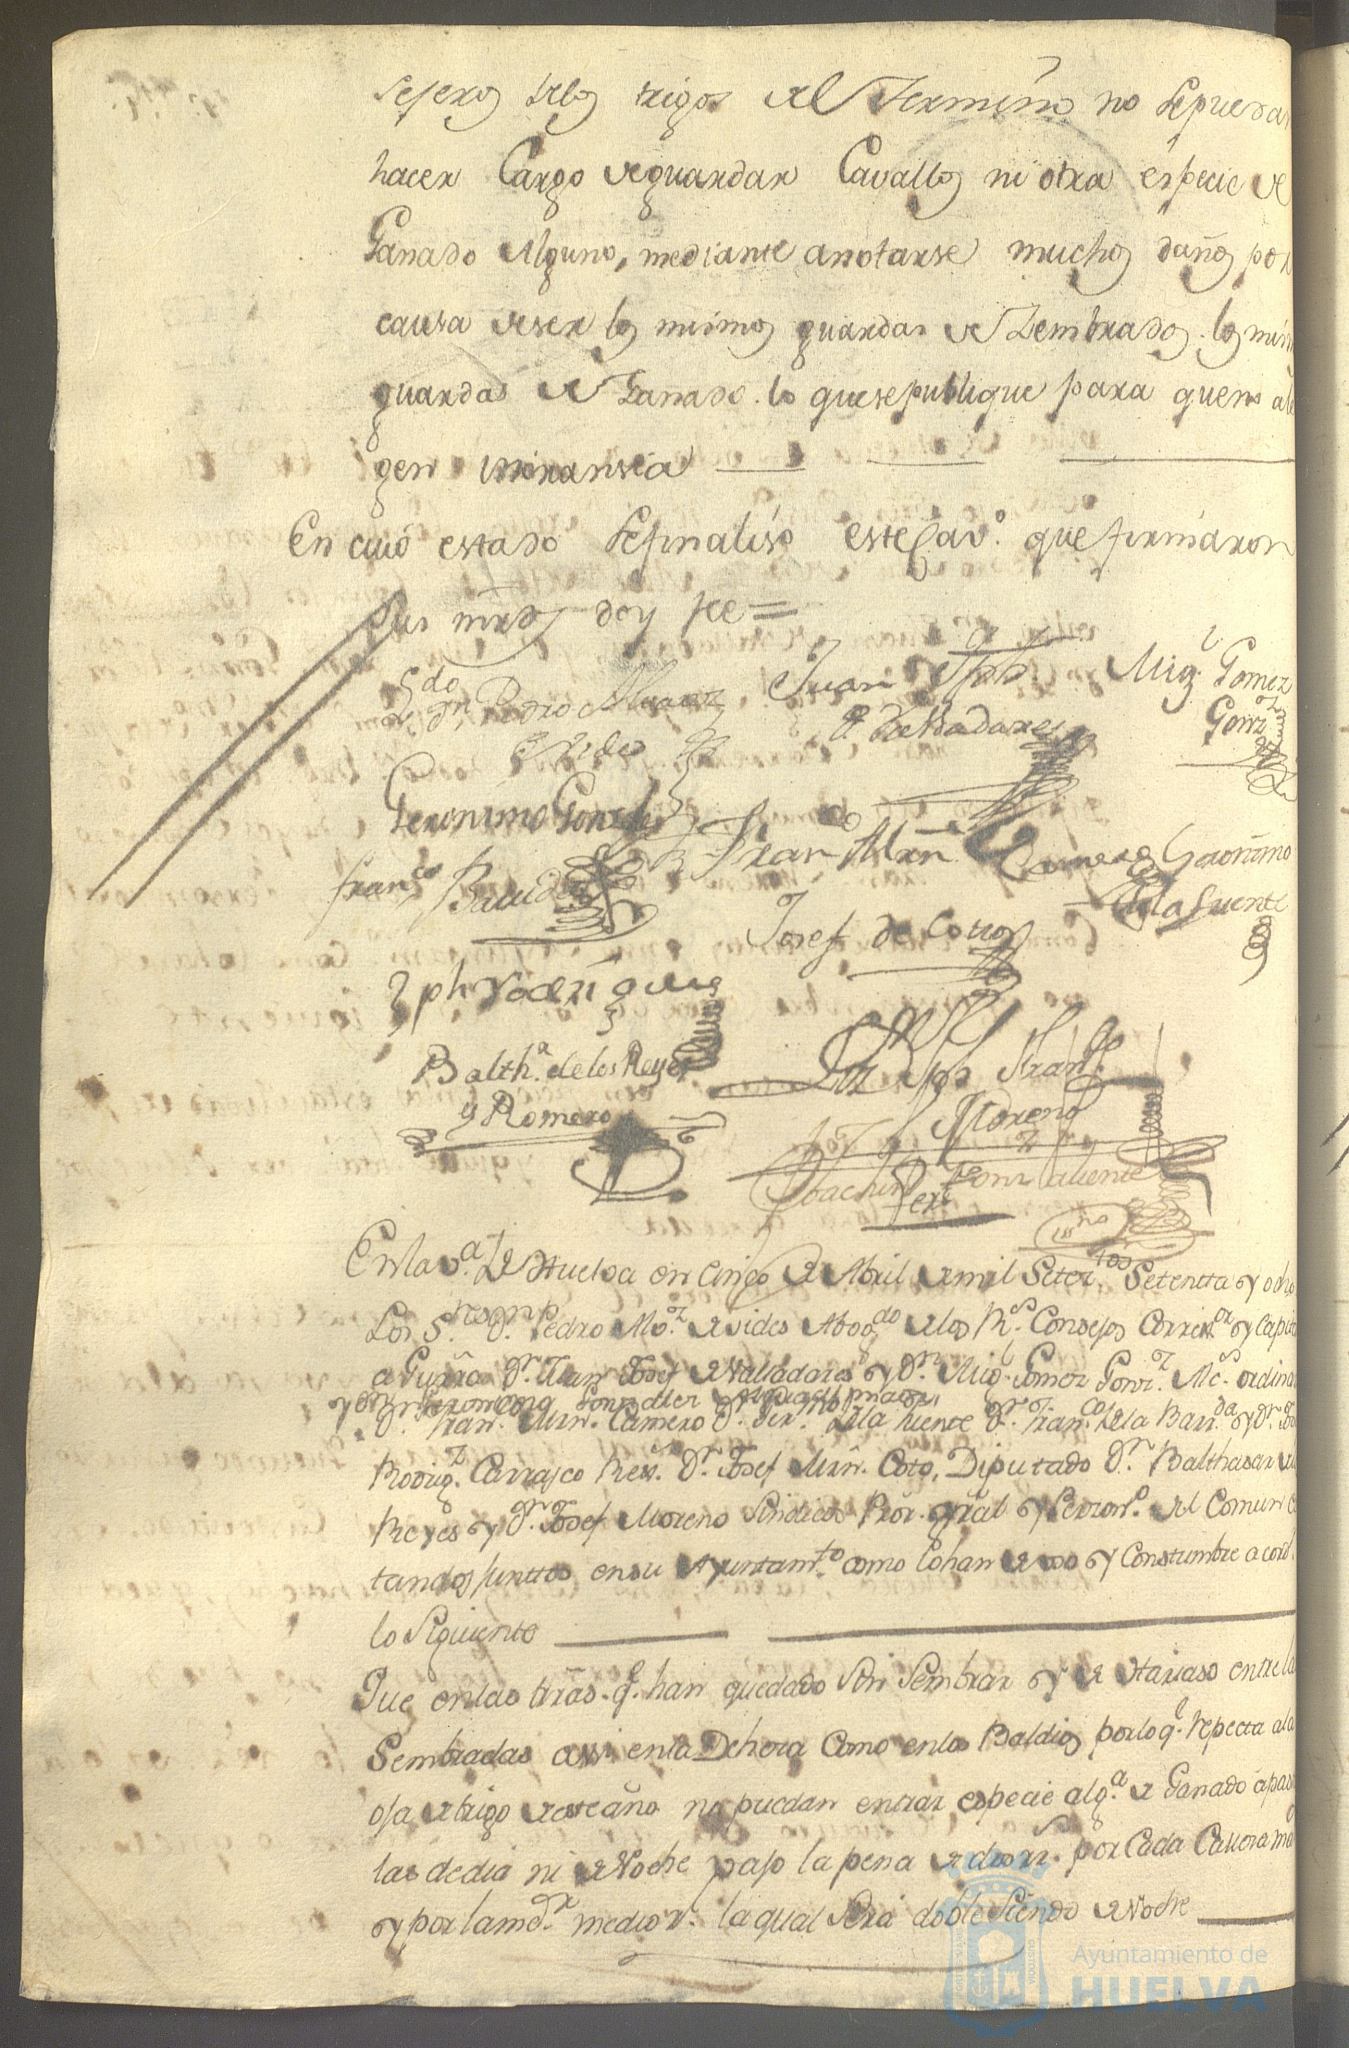 seseros de los trigos del Termino no sepueda
hacer Cargo deguardar Cavallos ni otra especie de
Ganado Alguno, mediante anotarse muchos daños por
causa deser los mismos guardas de Sembrados. los mism
guardas de Ganado. lo quesepublique para que no ale
gen innoransia
En cuio estado sefinalisó este Cav.º que firmaron
Sus mrds doy fee =
Ldo dn Pedro Alvarez
Juan Jph
Mig.l Gomez
de Valladares
Gonz
Geronimo Gonzalez
Fran Mrn Camero Geronimo
fran.co
de la Fuente
Josef de Coto
Jph rodrigues
Balth.r delos Reyes
y Romero
Jph Fran.co
Moreno
En la v.a de Huelva en Cinco de Abril de mil Setez.tos Setentta y ocho
Los S.res D.n Pedro Alv.z de vides Abog.do de los R.s Consejos Correx.or y Capit
a Guerra D.n Juan Josef de Valladares y D.n Mig.l Gomez Gonz.z Alc.s ordina
y D.n Geronimo Gonzalez
D.n Fran. Mrn. Camero D.n Ger.mo de la Fuente D.n Fran.co de la Barr.da y D.n Jo
Rodrig.z Carrasco Rex.s D.n Josef Mrn. Coto, Diputado D.n Balthasar de l
Reyes y D.n Josef Moreno Sindico Pror. gral y Person.o del Comun e
tando junttos en su Ayuntam.to como lo han de uso y Constumbre acord.
lo Siguiente
Que en las trãs. q.e han quedado Sin Sembrar y de Hariaso entre la
Sembradas assi en la Dehesa Como en los Baldios por lo q.e respecta a la
oja de trigo de este año no puedan entrar especie alg.a de Ganado a pas
las de dia ni de Noche vajo la pena de dos rs. por Cada Cavesa ma
y por la men.r medio r. la qual Será doble Siendo de Noche
Ayuntamiento de
HUELVA